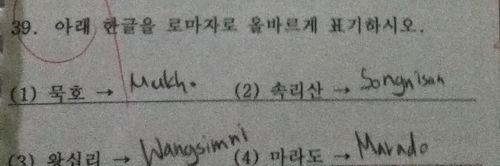 39. 아래 한글을 로마자로 올바르게 표기하시오.
(1) 묵호 → Mukho (2) 속리산 → Songnisan
(3) 왕십리 → Wangsimni (4) 마라도 → Marado